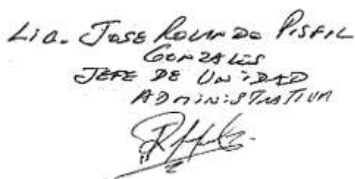 Lic. JOSE ROLANDO PISFIL
GONZALES
JEFE DE UNIDAD
ADMINISTRATIVA